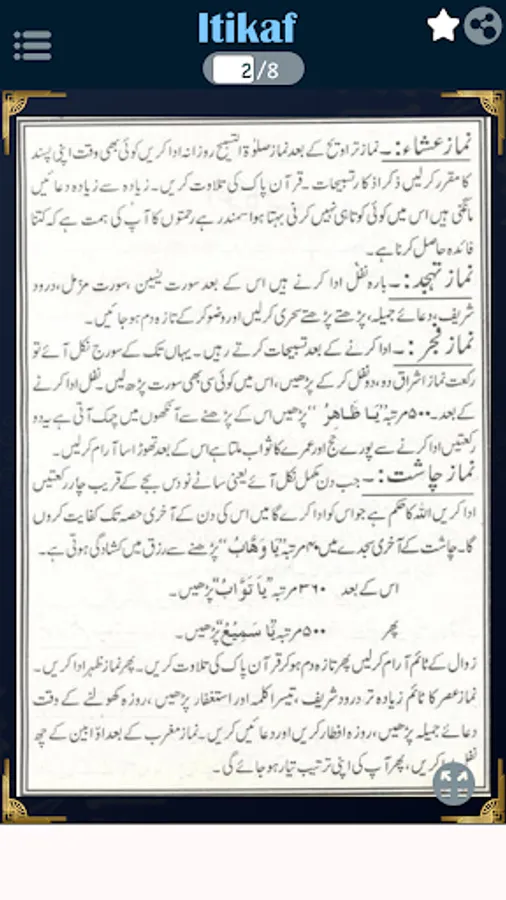 Itikaf
2/8
نماز عشاء:۔ نماز تراویح کے بعد نماز صلوٰۃ التسبیح روزانہ ادا کریں کوئی بھی وقت اپنی پسند
کا مقرر کرلیں ذکر اذکار تسبیحات ۔ قرآن پاک کی تلاوت کریں۔ زیادہ سے زیادہ دعائیں
مانگتی ہیں اس میں کوئی کوتاہی نہیں کرنی بہتا ہوا سمندر ہے رحمتوں کا آپ کی ہمت ہے کہ کتنا
فائدہ حاصل کرنا ہے۔
نماز تہجد:۔ بارہ نفل ادا کرنے ہیں اس کے بعد سورت یٰسین ، سورت مزمل، درود
شریف، دعائے جمیلہ، پڑھتے پڑھتے سحری کرلیں اور وضو کر کے تازہ دم ہو جائیں۔
نماز فجر:۔ ادا کرنے کے بعد تسبیحات کرتے رہیں۔ یہاں تک کے سورج نکل آئے تو
رکعت نماز اشراق دو، دو نفل کر کے پڑھیں، اس میں کوئی سی بھی سورت پڑھ لیں۔ نفل ادا کرنے
کے بعد۔ ۵۰۰ مرتبہ "یَا ظَاہِرُ" پڑھیں اس کے پڑھنے سے آنکھوں میں چمک آتی ہے یہ دو
رکعتیں ادا کرنے سے پورے حج اور عمرے کا ثواب ملتا ہے اس کے بعد تھوڑا سا آرام کرلیں۔
نماز چاشت:۔ جب دن مکمل نکل آئے یعنی ساڑھے نو دس بجے کے قریب چار رکعتیں
ادا کریں اللہ کا حکم ہے جو اس کو ادا کرے گا میں اس کی دن کے آخری حصہ تک کفایت کروں
گا۔ چاشت کے آخری سجدے میں ۴۰ مرتبہ "یَا وَھَّابُ" پڑھنے سے رزق میں کشادگی ہوتی ہے۔
اس کے بعد ۳۶۰ مرتبہ "یَا تَوَّابُ" پڑھیں۔
پھر ۵۰۰ مرتبہ "یَا سَمِیْعُ" پڑھیں۔
زوال کے ٹائم آرام کرلیں پھر تازہ دم ہو کر قرآن پاک کی تلاوت کریں۔ پھر نماز ظہر ادا کریں۔
نماز عصر کا ٹائم زیادہ تر درود شریف، تیسرا کلمہ اور استغفار پڑھیں، روزہ کھولنے کے وقت
دعائے جمیلہ پڑھیں، روزہ افطار کریں اور دعائیں کریں۔ نماز مغرب کے بعد اوّابین کے چھ
نفل ادا کریں، پھر آپ کی اپنی ترتیب تیار ہو جائے گی۔